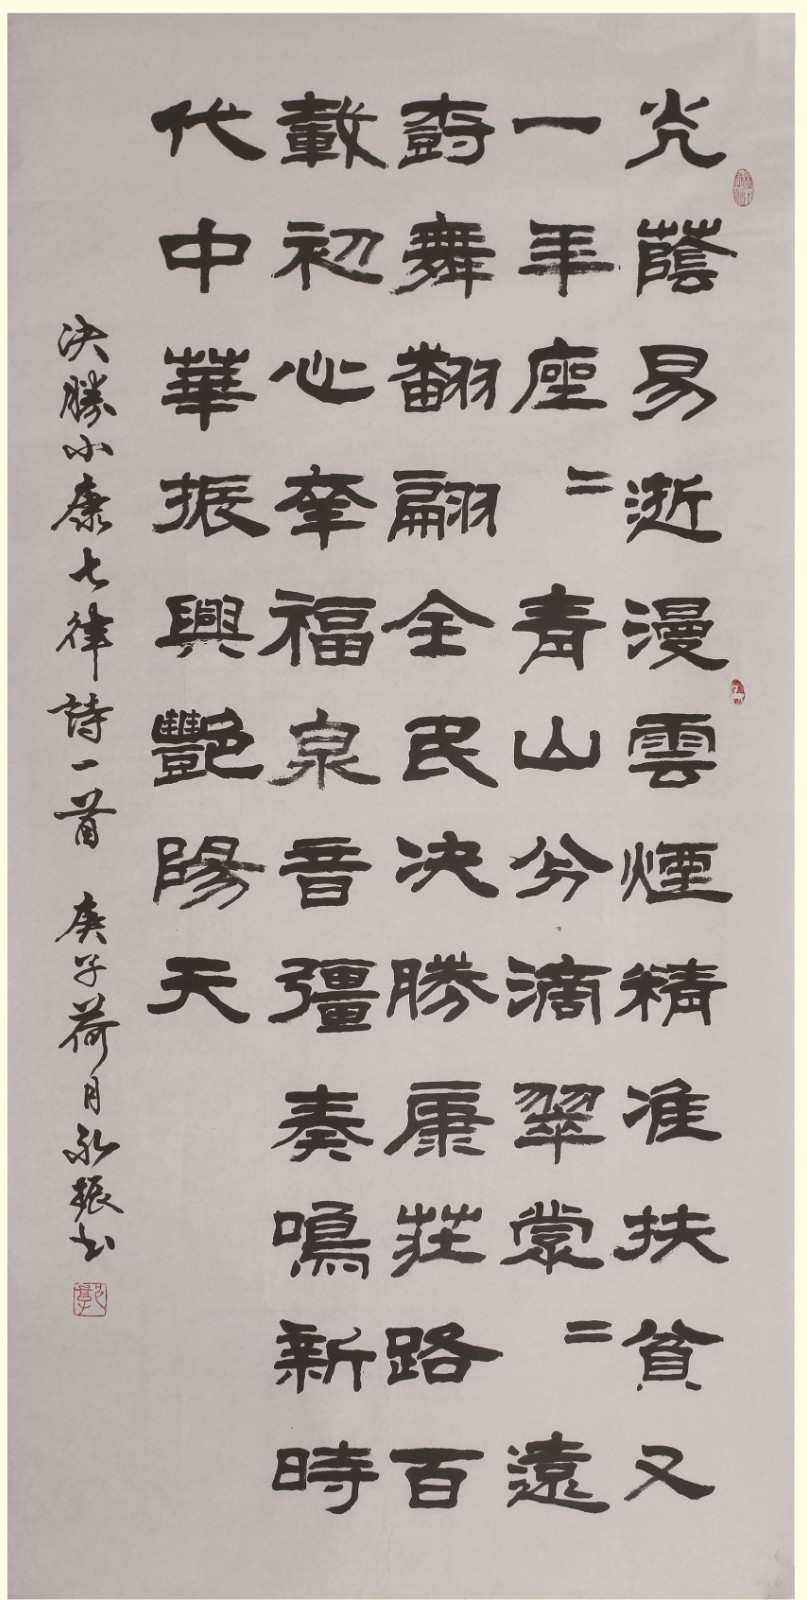 光蔭易逝漫雲煙精准扶貧又
一年座〻青山兮滴翠裳〻遠
舞翻翩全民决勝康莊路百
載初心牽福泉音彊奏鳴新時
代中華振興艷陽天
决勝小康七律詩一首 庚子荷月永振书